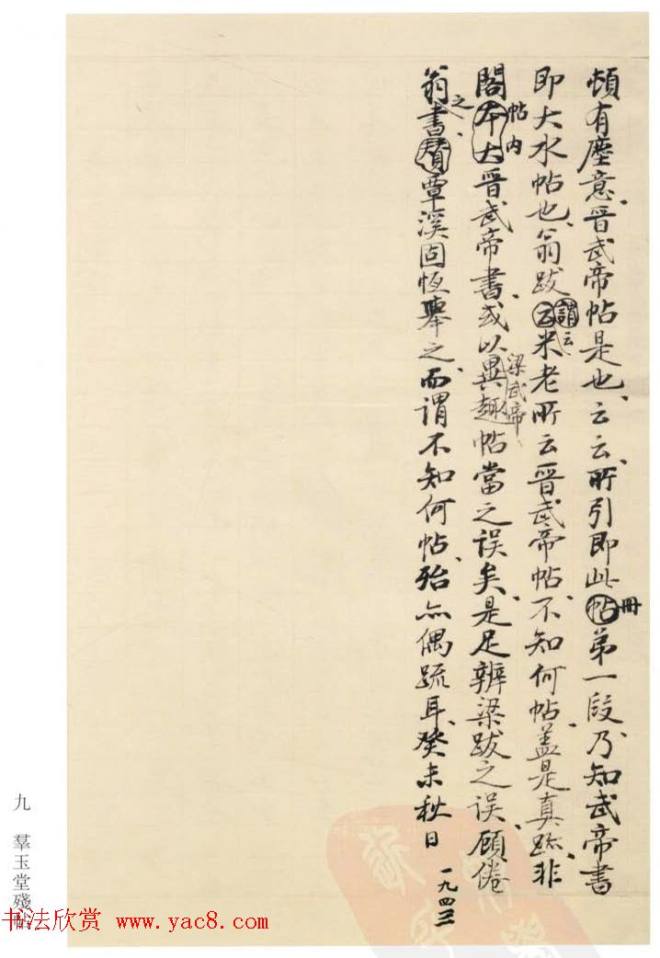 頓有塵意、晋武帝帖是也、云云、所引即此帖冊第一段、乃知武帝書
即大水帖也、翁跋云謂云米老所云晋武帝帖、不知何帖、盖是真跡、非
閣本大帖内晋武帝書、或以梁武帝異趣帖當之误矣、是足辨梁跋之误、顧倦
翁之書、覃溪固恆舉之、而謂不知何帖、殆亦偶疏耳、癸未秋日 一九四三
九 羣玉堂殘帖
书法欣赏 www.yac8.com